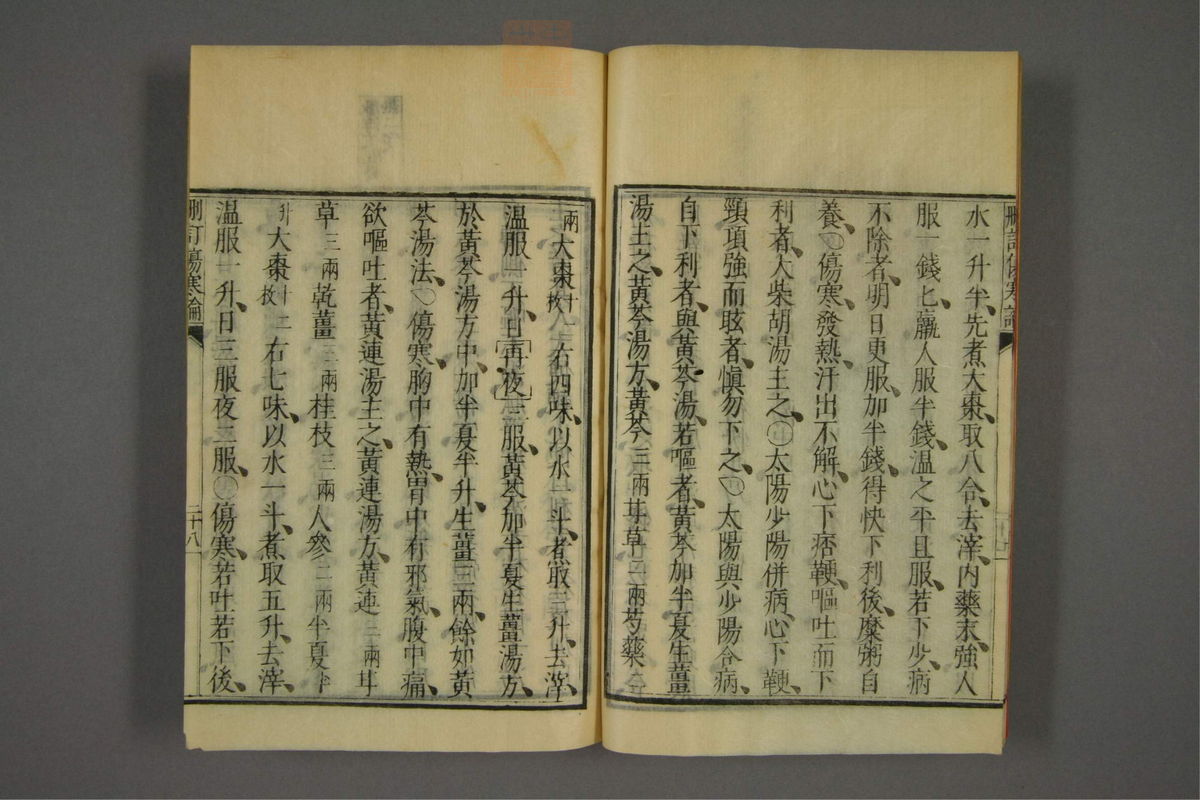 水一升半、先煮大棗、取八合、去滓、内藥末、強人
服一錢匕、羸人服半錢、温之、平旦服、若下少、病
不除者、明日更服、加半錢、得快下利後、糜粥自
養、○傷寒、發熱汗出不解、心下痞鞕、嘔吐而下
利者、大柴胡湯主之、○太陽少陽併病、心下鞕、
頸項強而眩者、愼勿下之、○太陽與少陽合病、
自下利者、與黃芩湯、若嘔者、黃芩加半夏生薑
湯主之、黃芩湯方、黃芩三兩甘草二兩芍藥二
刪訂傷寒論
兩大棗十二枚右四味、以水一斗、煮取三升、去滓、
温服一升、日再夜一服、黃芩加半夏生薑湯方、
於黃芩湯方中、加半夏半升、生薑三兩、餘如黃
芩湯法、○傷寒、胸中有熱、胃中有邪氣、腹中痛、
欲嘔吐者、黃連湯主之、黃連湯方、黃連三兩甘
草三兩乾薑三兩桂枝三兩人參二兩半夏半
升大棗十二枚右七味、以水一斗、煮取五升、去滓、
温服一升、日三服夜二服、○傷寒、若吐若下後、
刪訂傷寒論
二十八